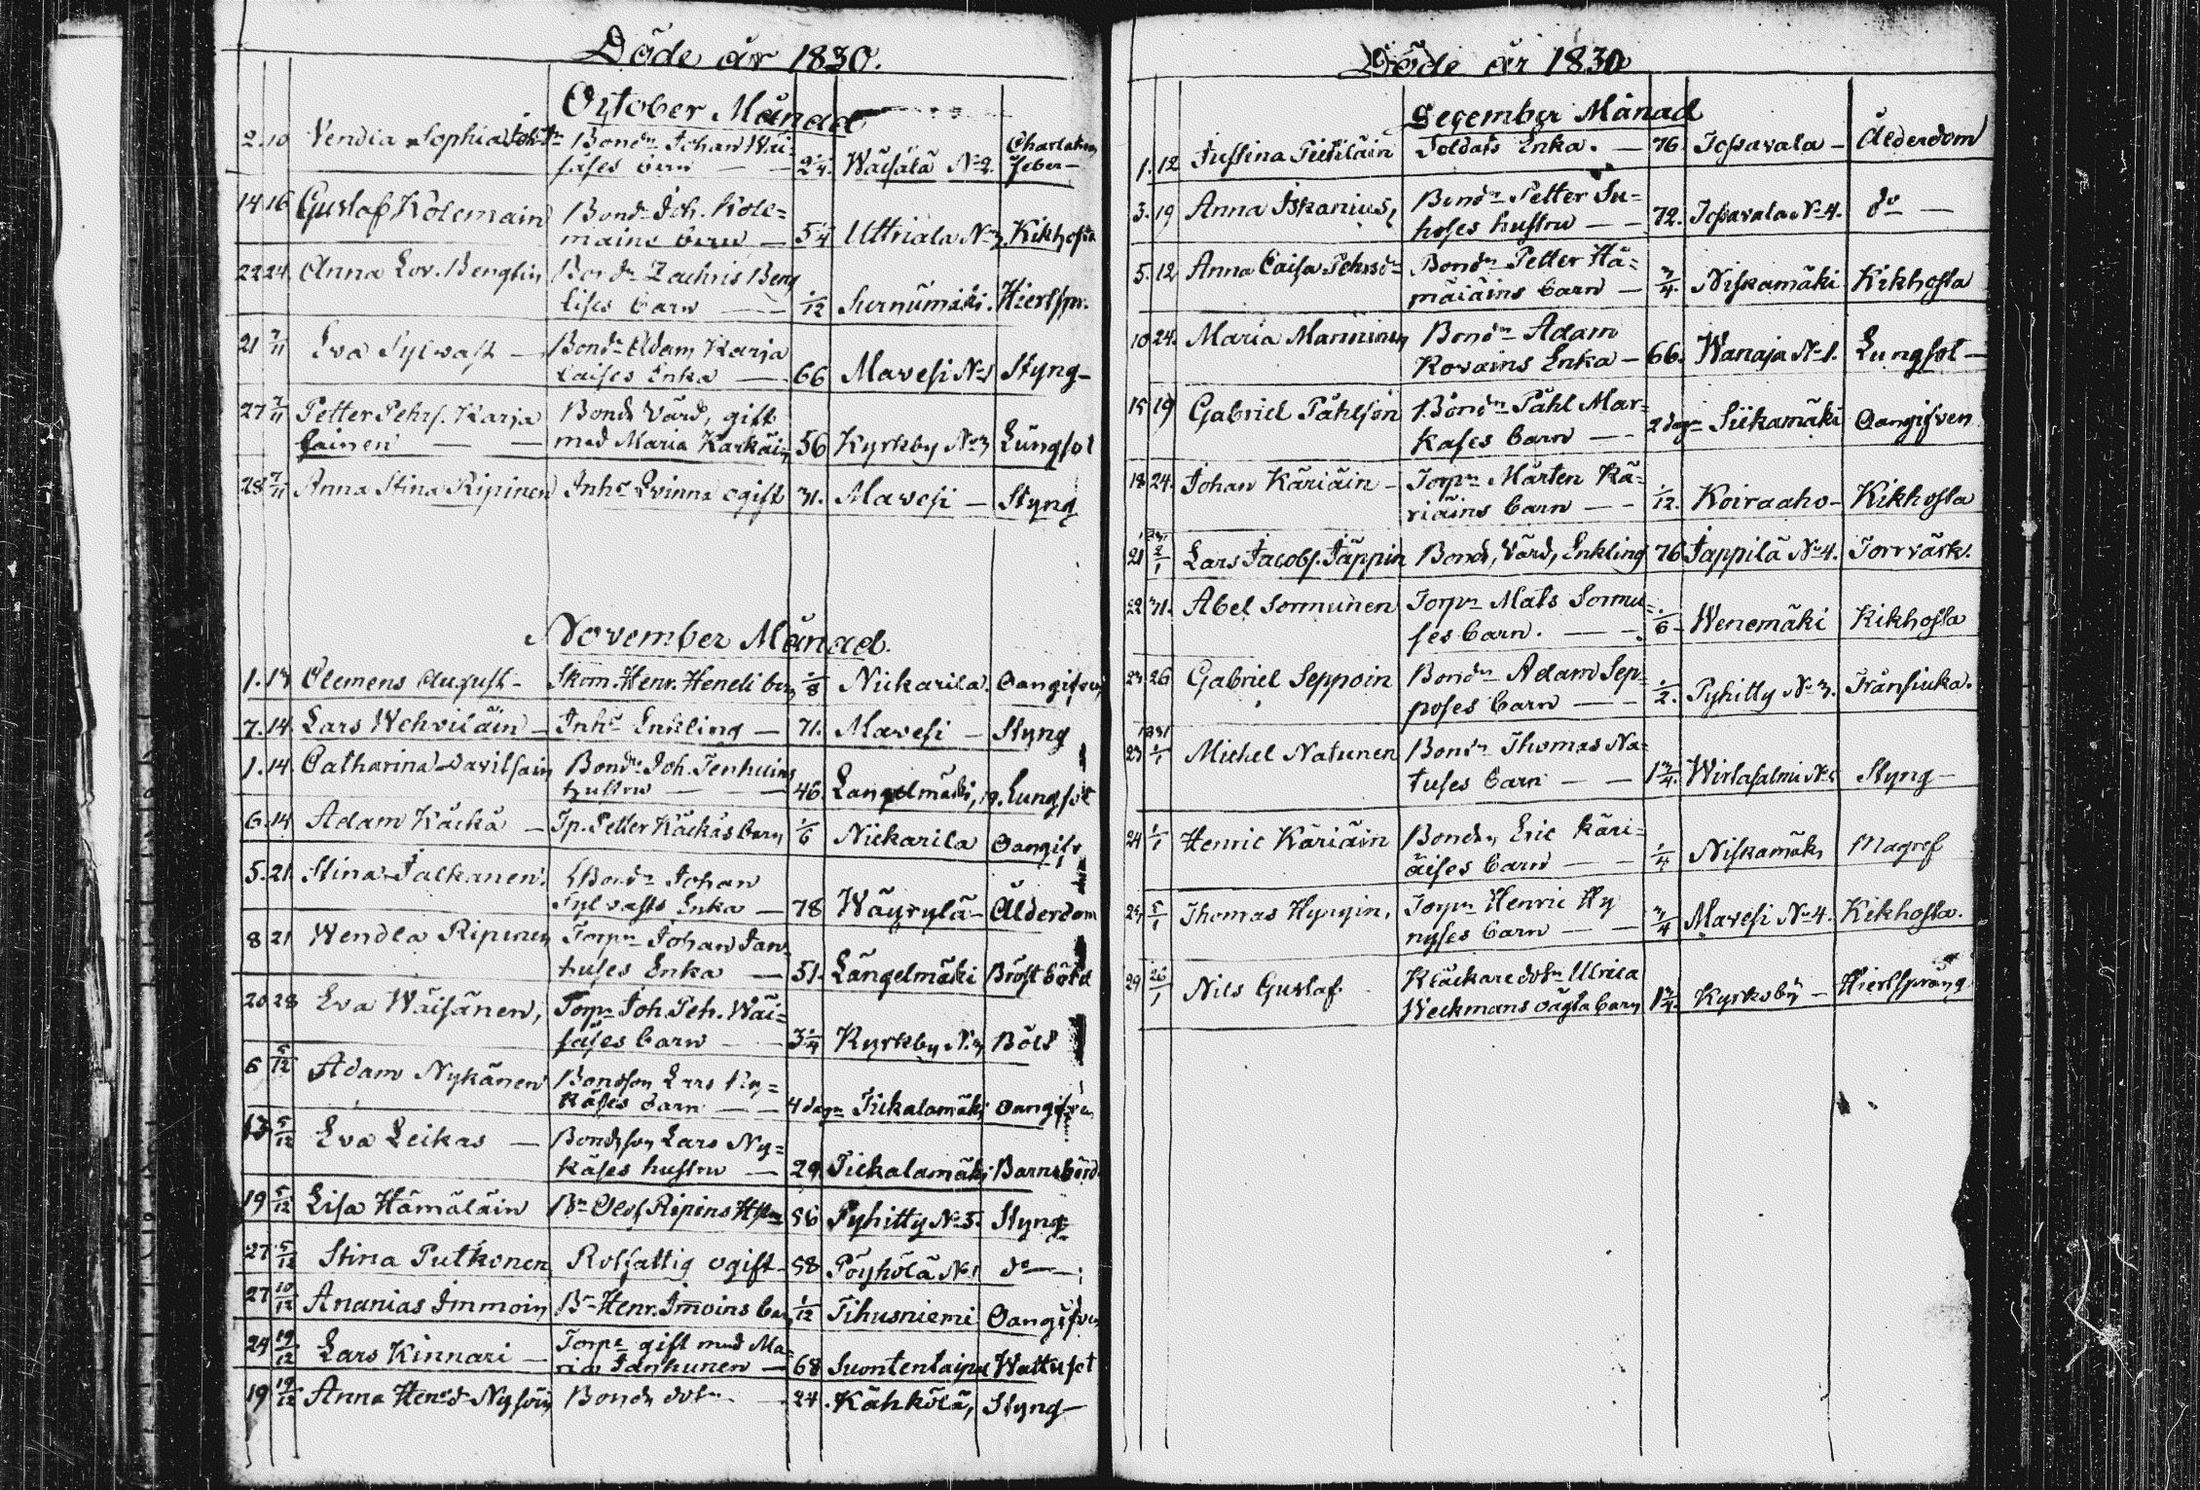 Döde år 1830.
October Månad
2. 10 Vendla Sophia Bond Johan Wäi=
säses barn — 2 1/4. Wäisälä No 2. Charlakans
feber —
14 16 Gustaf Kolemain Bond Joh. Kole=
mains barn — 5 1/4 Uttriala No 3. Kikhosta
22 24. Anna Lov. Bengtin Bond Zachris Beng
tises barn — 1/12 Surnumäki. Hiertspr.
21 7/11 Eva Sylvast — Bond Adam Karja
laises Enka — 66 Mavesi No 1 Styng —
27 7/11 Petter Pehrs. Karja Bond Värd, gift
lainen — — med Maria Karkäin 56 Kyrkby No 3 Lungsot
28 7/11 Anna Stina Ripinen Inhs Qvinna ogift 31. Mavesi — Styng
November Månad.
1. 13 Clemens August — Skom. Henr. Hendl barn 1/8 Niikarila. Oangifven
7. 14. Lars Wehviläin — Inhs Enkling — 71. Mavesi — Styng
1. 14. Catharina Davitsain Bond Joh. Tenhuins
hustru — 46. Längelmäki, Lungsot
6. 14 Adam Käckä — Tp. Petter Käckäs barn 1/6 Niikarila Oangifv
5. 21 Stina Jalkanen. Bond Johan
Sylvasts Enka — 78 Wäyrylä — Ålderdom
8 21 Wendla Ripinen Torp Johan Jan=
huses Enka — 51. Längelmäki Bröstböld
20 28 Eva Wäisänen, Torp Joh. Peh. Wäi=
säses barn — 3 1/4 Kyrkby No 3 Böld
6 5/12 Adam Nykänen Bondson Lars Ny=
käses barn — — 4 dagr Tiikalamäki Oangifven
13 5/12 Eva Leikas — Bondson Lars Ny=
käses hustru — 29. Tiekalamäki Barnsbörd
19 5/12 Lisa Hämäläin Bn Olof Ripins Hstru 56 Pyhitty No 5. Styng
27 5/12 Stina Putkonen Rotfattig ogift — 58 Pöyhölä No 1 do — :
27 10/12 Ananias Immoin Bn Henr. Imoins barn 1/12 Tihusniemi Oangifven
24 19/12 Lars Kinnari — Torp gift med Ma=
ria Janhunen — 68 Suontentaipal Wattusot
19 19/12 Anna Henrsd Nysöin Bond dotr — 24. Kähkölä, Styng —
Döde år 1830
December Månad
1. 12 Justina Pietiläin Soldats Enka. — 76. Josavala — Ålderdom
3. 19 Anna Iskanius, Bond Petter Su=
hoses hustru — — 72. Josavala No 4. do —
5. 12 Anna Caisa Pehrsdr Bond Petter Hä=
mäläins barn — 3/4. Niskamäki Kikhosta
10 24. Maria Manninen Bond Adam
Kovains Enka — 66. Wanaja No 1. Lungsot —
15 19 Gabriel Påhlson Bond Påhl Mar=
kases barn — — 2 dagr Siikamäki Oangifven
18 24. Johan Käriäin — Torp Mårten Kä=
riäins barn — — 1/12. Koiraaho — Kikhosta
21 2/1 Lars Jacobs. Jäppin Bond, Värd, Enkling 76 Jäppilä No 4. Torrvärk.
22 31. Abel Sormunen Torp Mats Sormu=
ses barn. — — 1/6 — Wenemäki Kikhosta
23 26 Gabriel Seppoin Bond Adam Sep=
poses barn — — 1/2. Pyhitty No 3. Trånsiuka.
1831
23 1/1 Michel Natunen Bond Thomas Na=
tuses barn — — 1 3/4. Wirtasalmi No 5 Styng —
24 1/1 Henric Käriäin Bond Eric Käri=
äises barn — — 1/4 Niskamäki Magref
24 5/1 Thomas Hynyin, Torp Henric Hy
nyses barn — — 3/4 Mavesi No 4. Kikhosta.
29 26/1 Nils Gustaf. Klåckare dotr Ulrica
Weckmans oägta barn 1 3/4. Kyrkoby — Hiertsprång